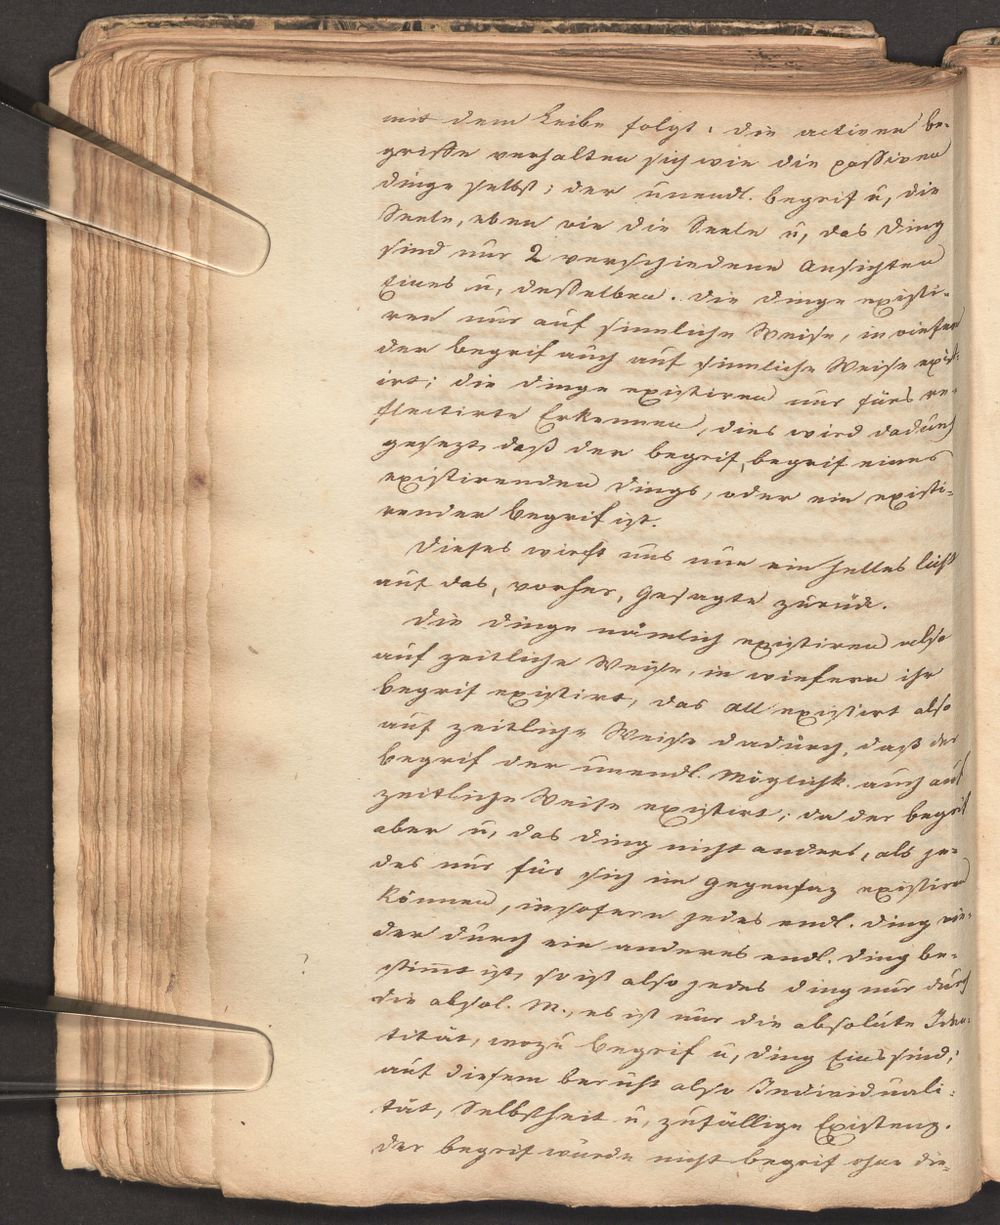 mit dem Leibe folgt: die activen Be-
griffe verhalten sich wie die passiven
Dinge selbst; der unendl. Begrif u, die
Seele, eben wie die Seele u, das Ding
sind nur 2 verschiedene Ansichten
Eines u, desselben. Die Dinge existi-
ren nur auf sinnliche Weise, in wiefern
der Begrif auch auf sinnliche Weise exist-
irt; die Dinge existiren nur fürs re-
flectirte Erkennen, dies wird dadurch
gesezt, daß der Begrif, Begrif eines
existirenden Dings, oder ein existi-
render Begrif ist.
Dieses wirft uns nun ein helles Licht
auf das, vorher, Gesagte zurück.
Die Dinge nämlich existiren also
auf zeitliche Weise, in wiefern ihr
Begrif existirt, das All existirt also
auf zeitliche Weise dadurch, daß der
Begrif der unendl. Möglichk. auch auf
zeitliche Weise existirt; da der Begrif
aber u, das Ding nicht anders, als je-
des nur für sich im Gegensaz existiren
können, insofern jedes endl. Ding wie-
der durch ein anderes endl. Ding be-
stimmt ist, so ist also jedes Ding nur durch
die absol. M., es ist nur die absolute Iden-
tität, wozu Begrif u, Ding Eins sind;
auf diesem beruht also Individuali-
tät, Selbstheit u, zufällige Existenz.
Der Begrif würde nicht Begrif ohne die-